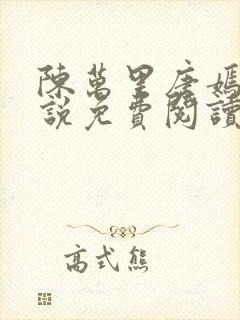 陳萬里唐嫣
說免費閱讀
高式熊